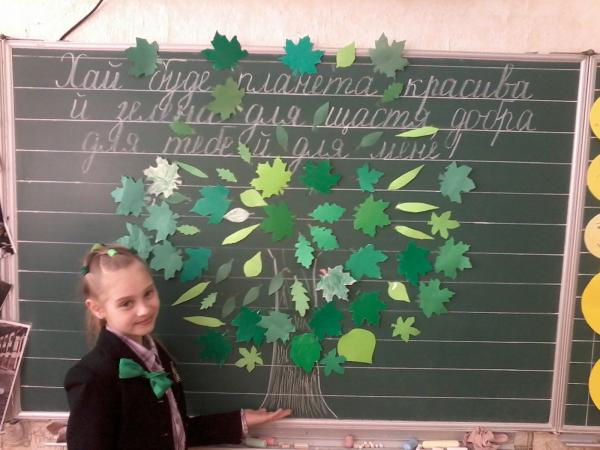 Хай буде планета красива
й зелена для щастя добра
для тебе й для мене